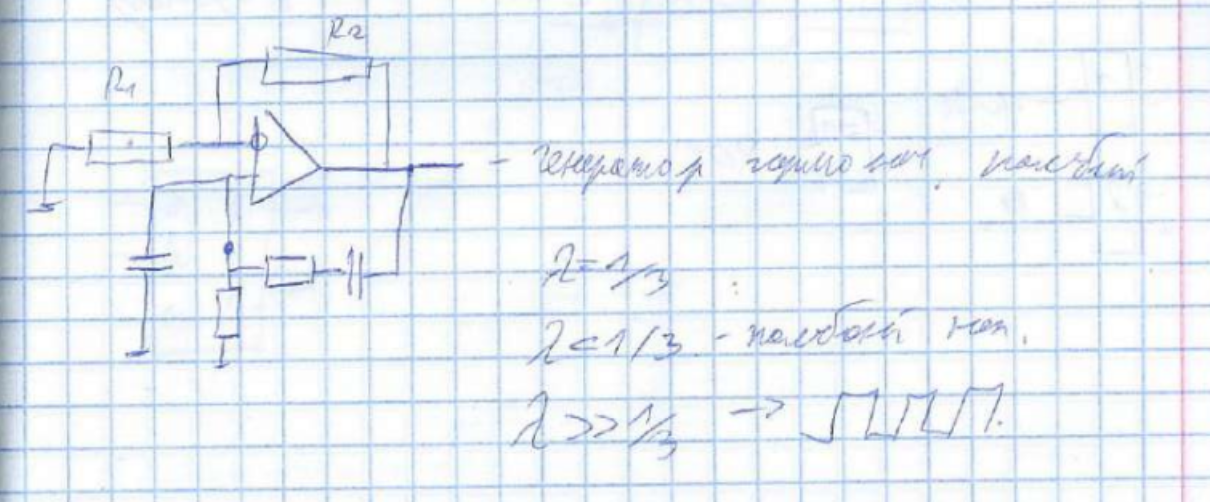 R2
R1
- генератор гармонич. колебан
λ=1/3
λ<1/3 - колебан нет.
λ>>1/3 →